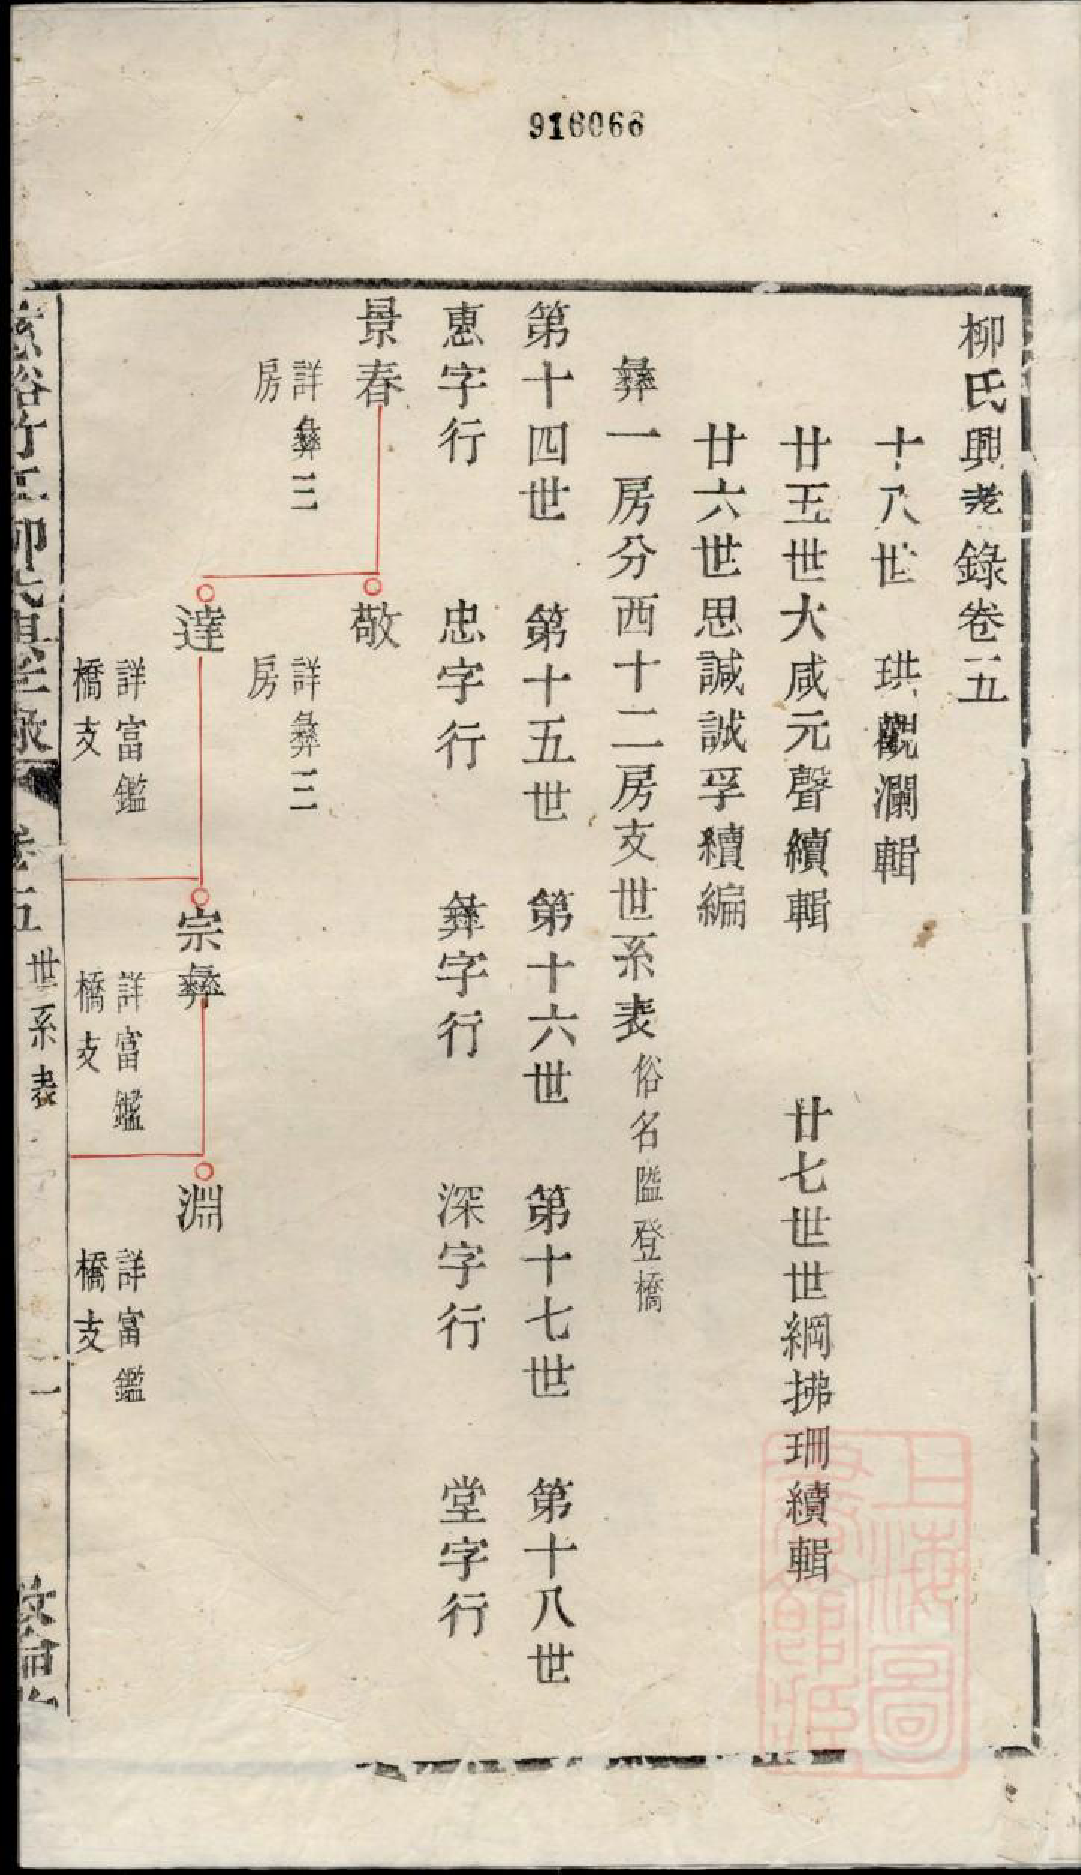 916066
柳氏興孝錄卷五
十八世 珙觀瀾輯
廿五世大咸元聲續輯 廿七世世綱拂珊續輯
廿六世思諴誠孚續編
彝一房分西十二房支世系表 俗名隘登橋
第十四世 第十五世 第十六世 第十七世 第十八世
惠字行 忠字行 彝字行 深字行 堂字行
景春 敬
詳彝三 詳彝三
房 房
達 宗彝 淵
詳富鑑 詳富鑑 詳富鑑
橋支 橋支 橋支
卷五 世系表 一
上海圖
書館藏